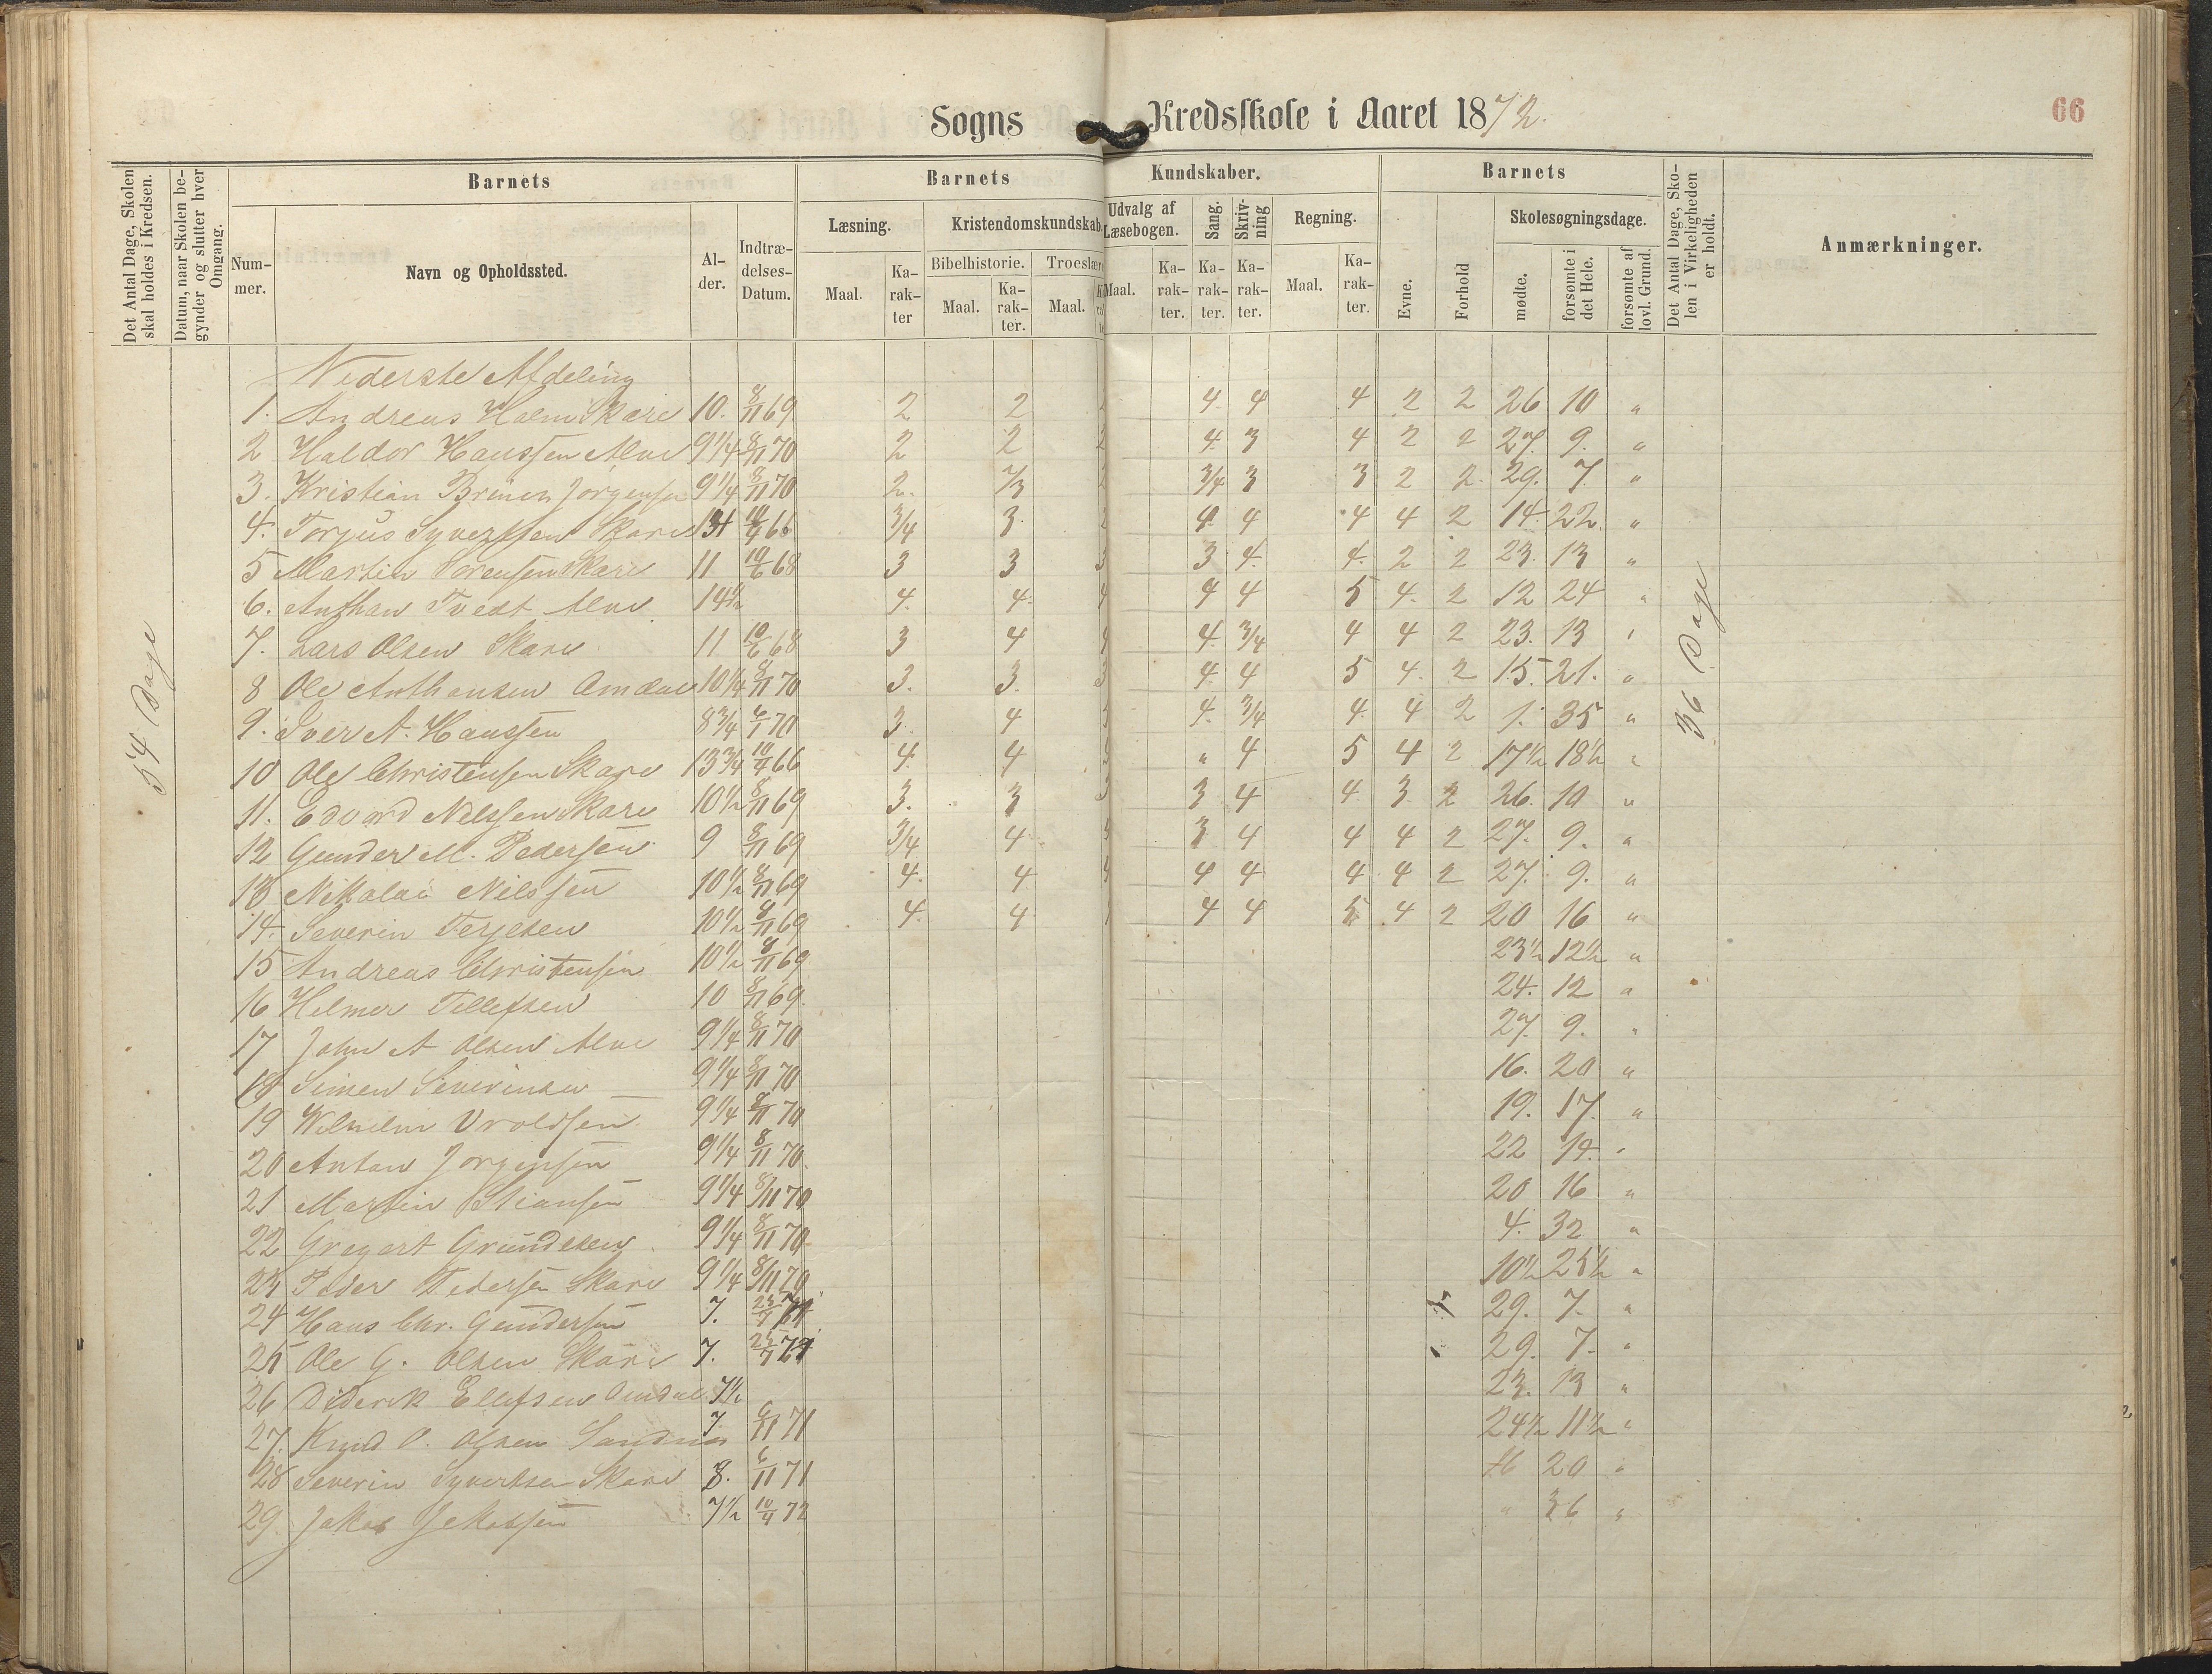 Sogns Kredsskole i Aaret 1872.
66
Det Antal Dage, Skolen skal holdes i Kredsen.
Datum, naar Skolen begynder og slutter hver Omgang.
Barnets
Num-mer.
Navn og Opholdssted.
Al-der.
Indtræ-delses-Datum.
Barnets Kundskaber.
Læsning.
Maal.
Ka-rak-ter
Kristendomskundskab.
Bibelhistorie.
Maal.
Ka-rak-ter.
Troeslær
Maal.
Udvalg af Læsebogen.
Maal.
Ka-rak-ter.
Sang.
Ka-rak-ter.
Skriv-ning
Ka-rak-ter.
Regning.
Maal.
Ka-rak-ter.
Barnets
Evne.
Forhold
Skolesøgningsdage.
mødte.
forsømte i det Hele.
forsømte af lovl. Grund.
Det Antal Dage, Sko-len i Virkeligheden er holdt.
Anmærkninger.
54 Dage
36 Dage
Nederste Afdeling
1. Andreas Holm Skare 10. 8/11 69 2 2 4 4 4 2 2 26 10 "
2 Haldor Hanssen Alve 9 1/4 8/11 70 2 2 2 4 3 4 2 2 27. 9. "
3. Kristian Jørgensen 9 1/4 8/11 70 2. 2/3 2 3/4 3 3 2 2. 29. 7. "
4. Torjus Syvertsen Skare 66 3/4 3. 4 4 4 4 2 14. 22. "
5 Martin Sørensen Skare 11 10/6 68 3 3 3 3 4. 4. 2 2 23. 13 "
6. Anthan Tvedt Alve 14 1/2 4. 4. 4 4 4 5 4. 2 12 24 "
7. Lars Olsen Skare 11 10/6 68 3 4 4 4. 3/4 4 4 2 23. 13 "
8 Ole Anthonsen Omdal 10 1/4 8/11 70 3. 3. 3 4 4 5 4. 2 15. 21. "
9. Iver A. Hanssen 8 3/4 6/1 70 3. 4 4. 3/4 4. 4 2 1. 35 "
10 Ole Christensen Skare 13 3/4 10/4 66 4. 4 " 4 5 4 2 17 1/2 18 1/2 "
11. Edvard Nelssen Skare 10 1/2 8/11 69 3. 3 3 3 4 4 3 2 26. 10 "
12 Gunder M. Pedersen 9 8/11 69 3/4 4 3 4 4 4 2 27. 9. "
13 Nikolai Nilssen 10 1/2 8/11 69 4. 4 4 4 4 4 2 27. 9. "
14. Severin Terjesen 10 1/2 8/11 69 4. 4 4 4 5 4 2 20 16 "
15 Andreas Christensen 10 1/2 8/11 69 23 1/2 12 1/2 "
16 Helmer Tellefsen 10 8/11 69. 24. 12 "
17 John A Olsen Alve 9 1/4 8/11 70 27. 9. "
18 Simen Severinsen 9 1/4 8/11 70 16. 20 "
19 Wilhelm Vroldsen 9 1/4 8/11 70 19. 17. "
20 Anton Jørgensen 9 1/4 8/11 70. 22 14. "
21 Martin Stiansen 9 1/4 8/11 70 20 16 "
22 Gregert Grundesen 9 1/4 8/11 70 4. 32 "
23 Peder Pedersen Skare 9 1/4 8/11 70 10 1/2 25 1/2 "
24 Hans Chr. Gundersen 7. 29. 7. "
25 Ole G. Olsen Skare 7. 29. 7. "
26 Diderik Ellefsen Omdal 7 1/2 23. 13 "
27. Knud O. Olsen Sandnes 7 6/11 71 24 1/2 11 1/2 "
28 Severin Syvertsen Skare 8. 6/11 71 16 20 "
29 Jakob Jakobsen 7 1/2 10/4 72 " 36 "